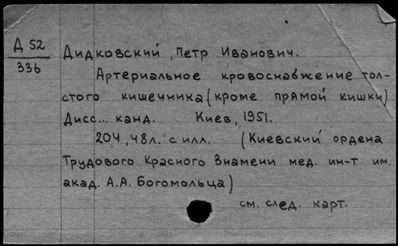 Д 52
336
Дидковский, Петр Иванович.
Артериальное кровоснабжение тол-
стого кишечника (кроме прямой кишки)
Дисс... канд. Киев, 1951.
204, 48л. с илл. (Киевский ордена
Трудового Красного Знамени мед. ин-т им.
акад. А.А. Богомольца)
см. след. карт.